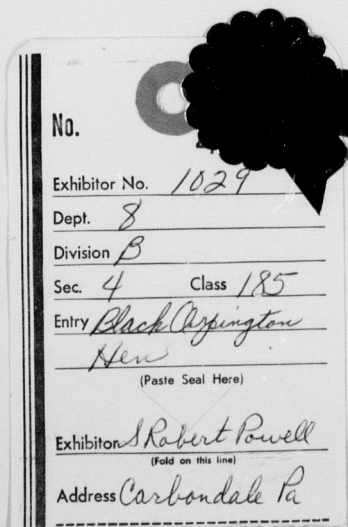 No.
Exhibitor No. 1029
Dept. 8
Division B
Sec. 4 Class 185
Entry Black Orpington
Hen
(Paste Seal Here)
Exhibitor S Robert Powell
(Fold on this line)
Address Carbondale Pa